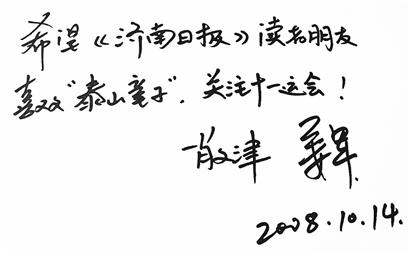 希望《济南日报》读者朋友
喜欢“泰山童子”，关注十一运会！
肖津
2008.10.14.